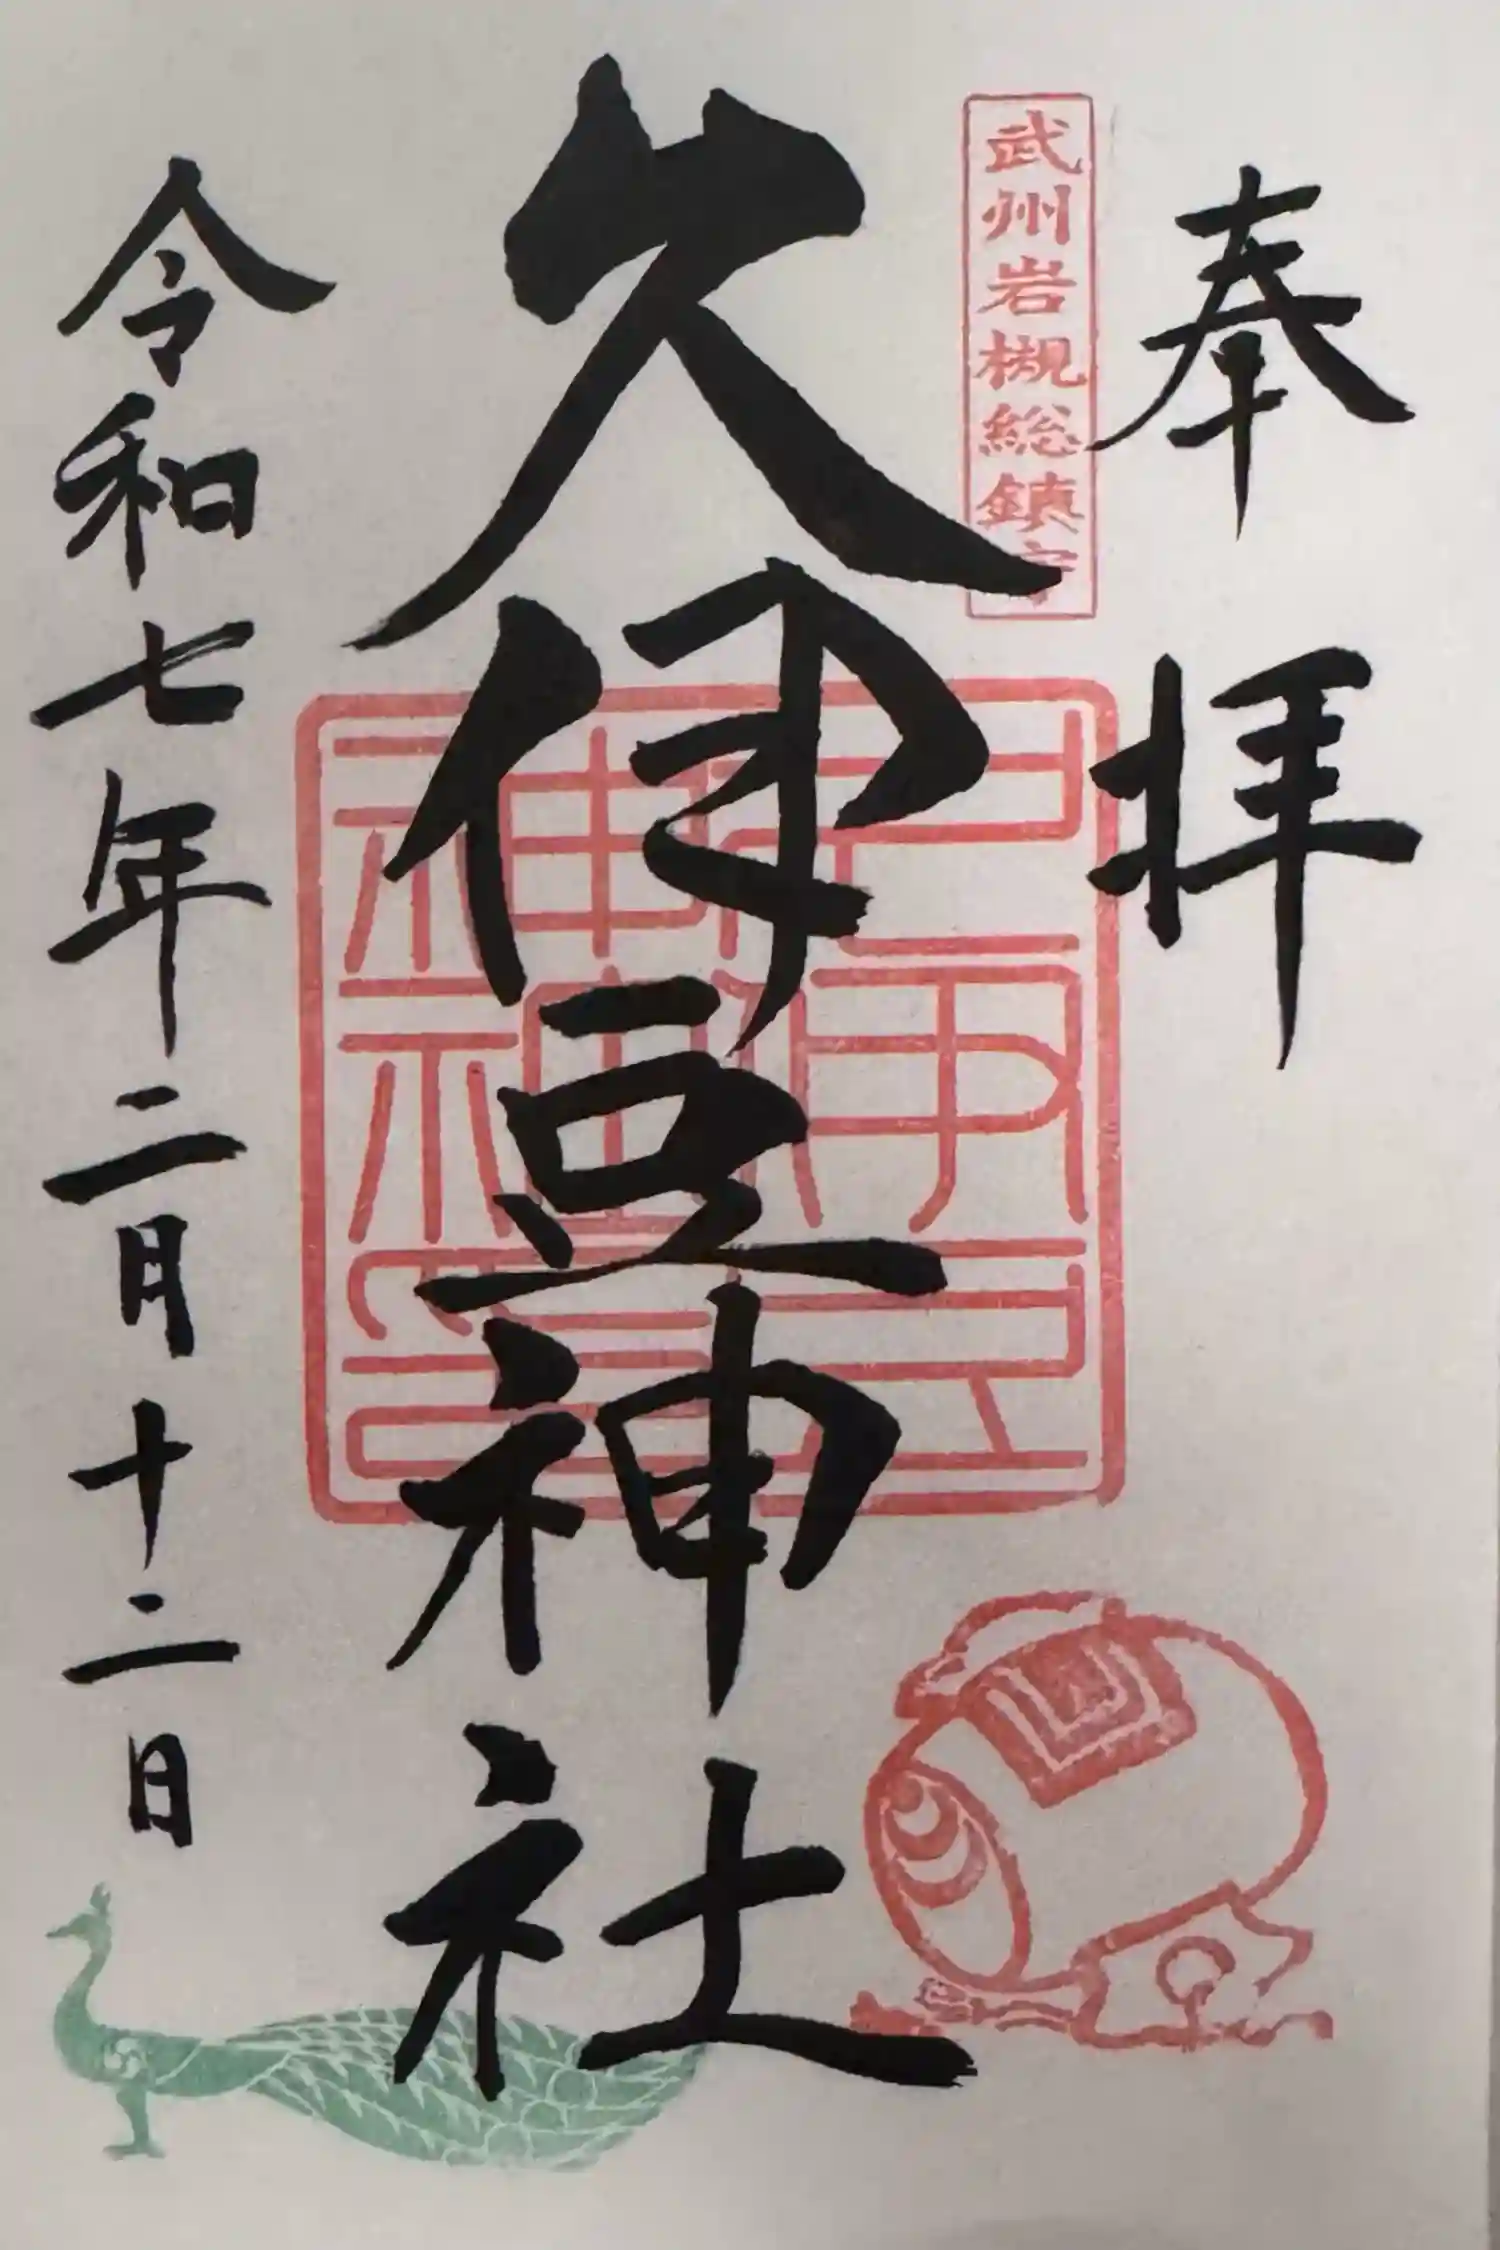 奉拝
武州岩槻総鎮守
久伊豆神社
令和七年二月十二日